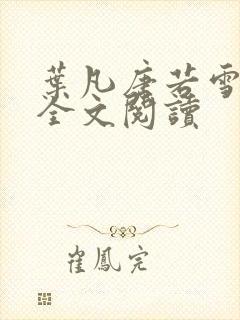 葉凡唐若雪
全文閱讀
崔鳳完